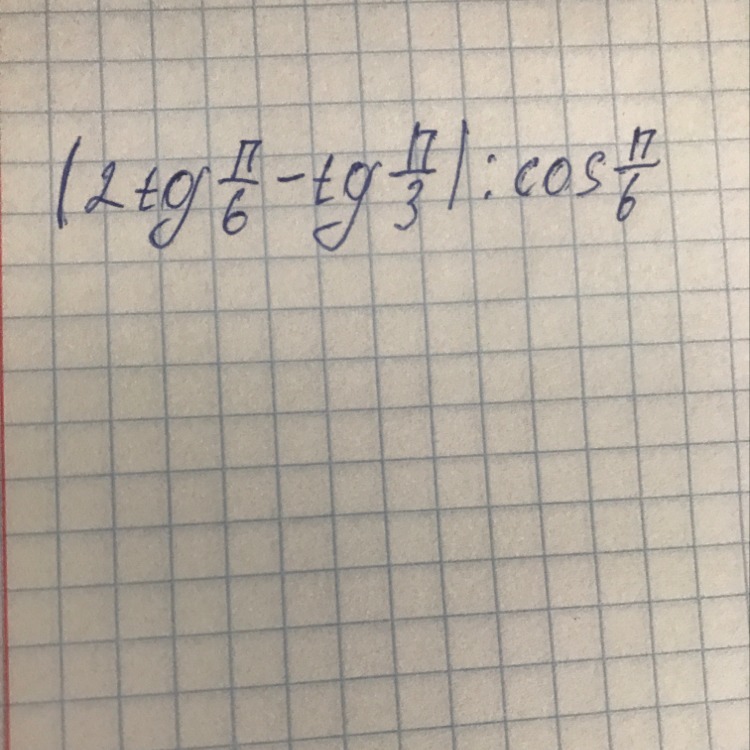 (2tg π/6 - tg π/3) : cos π/6